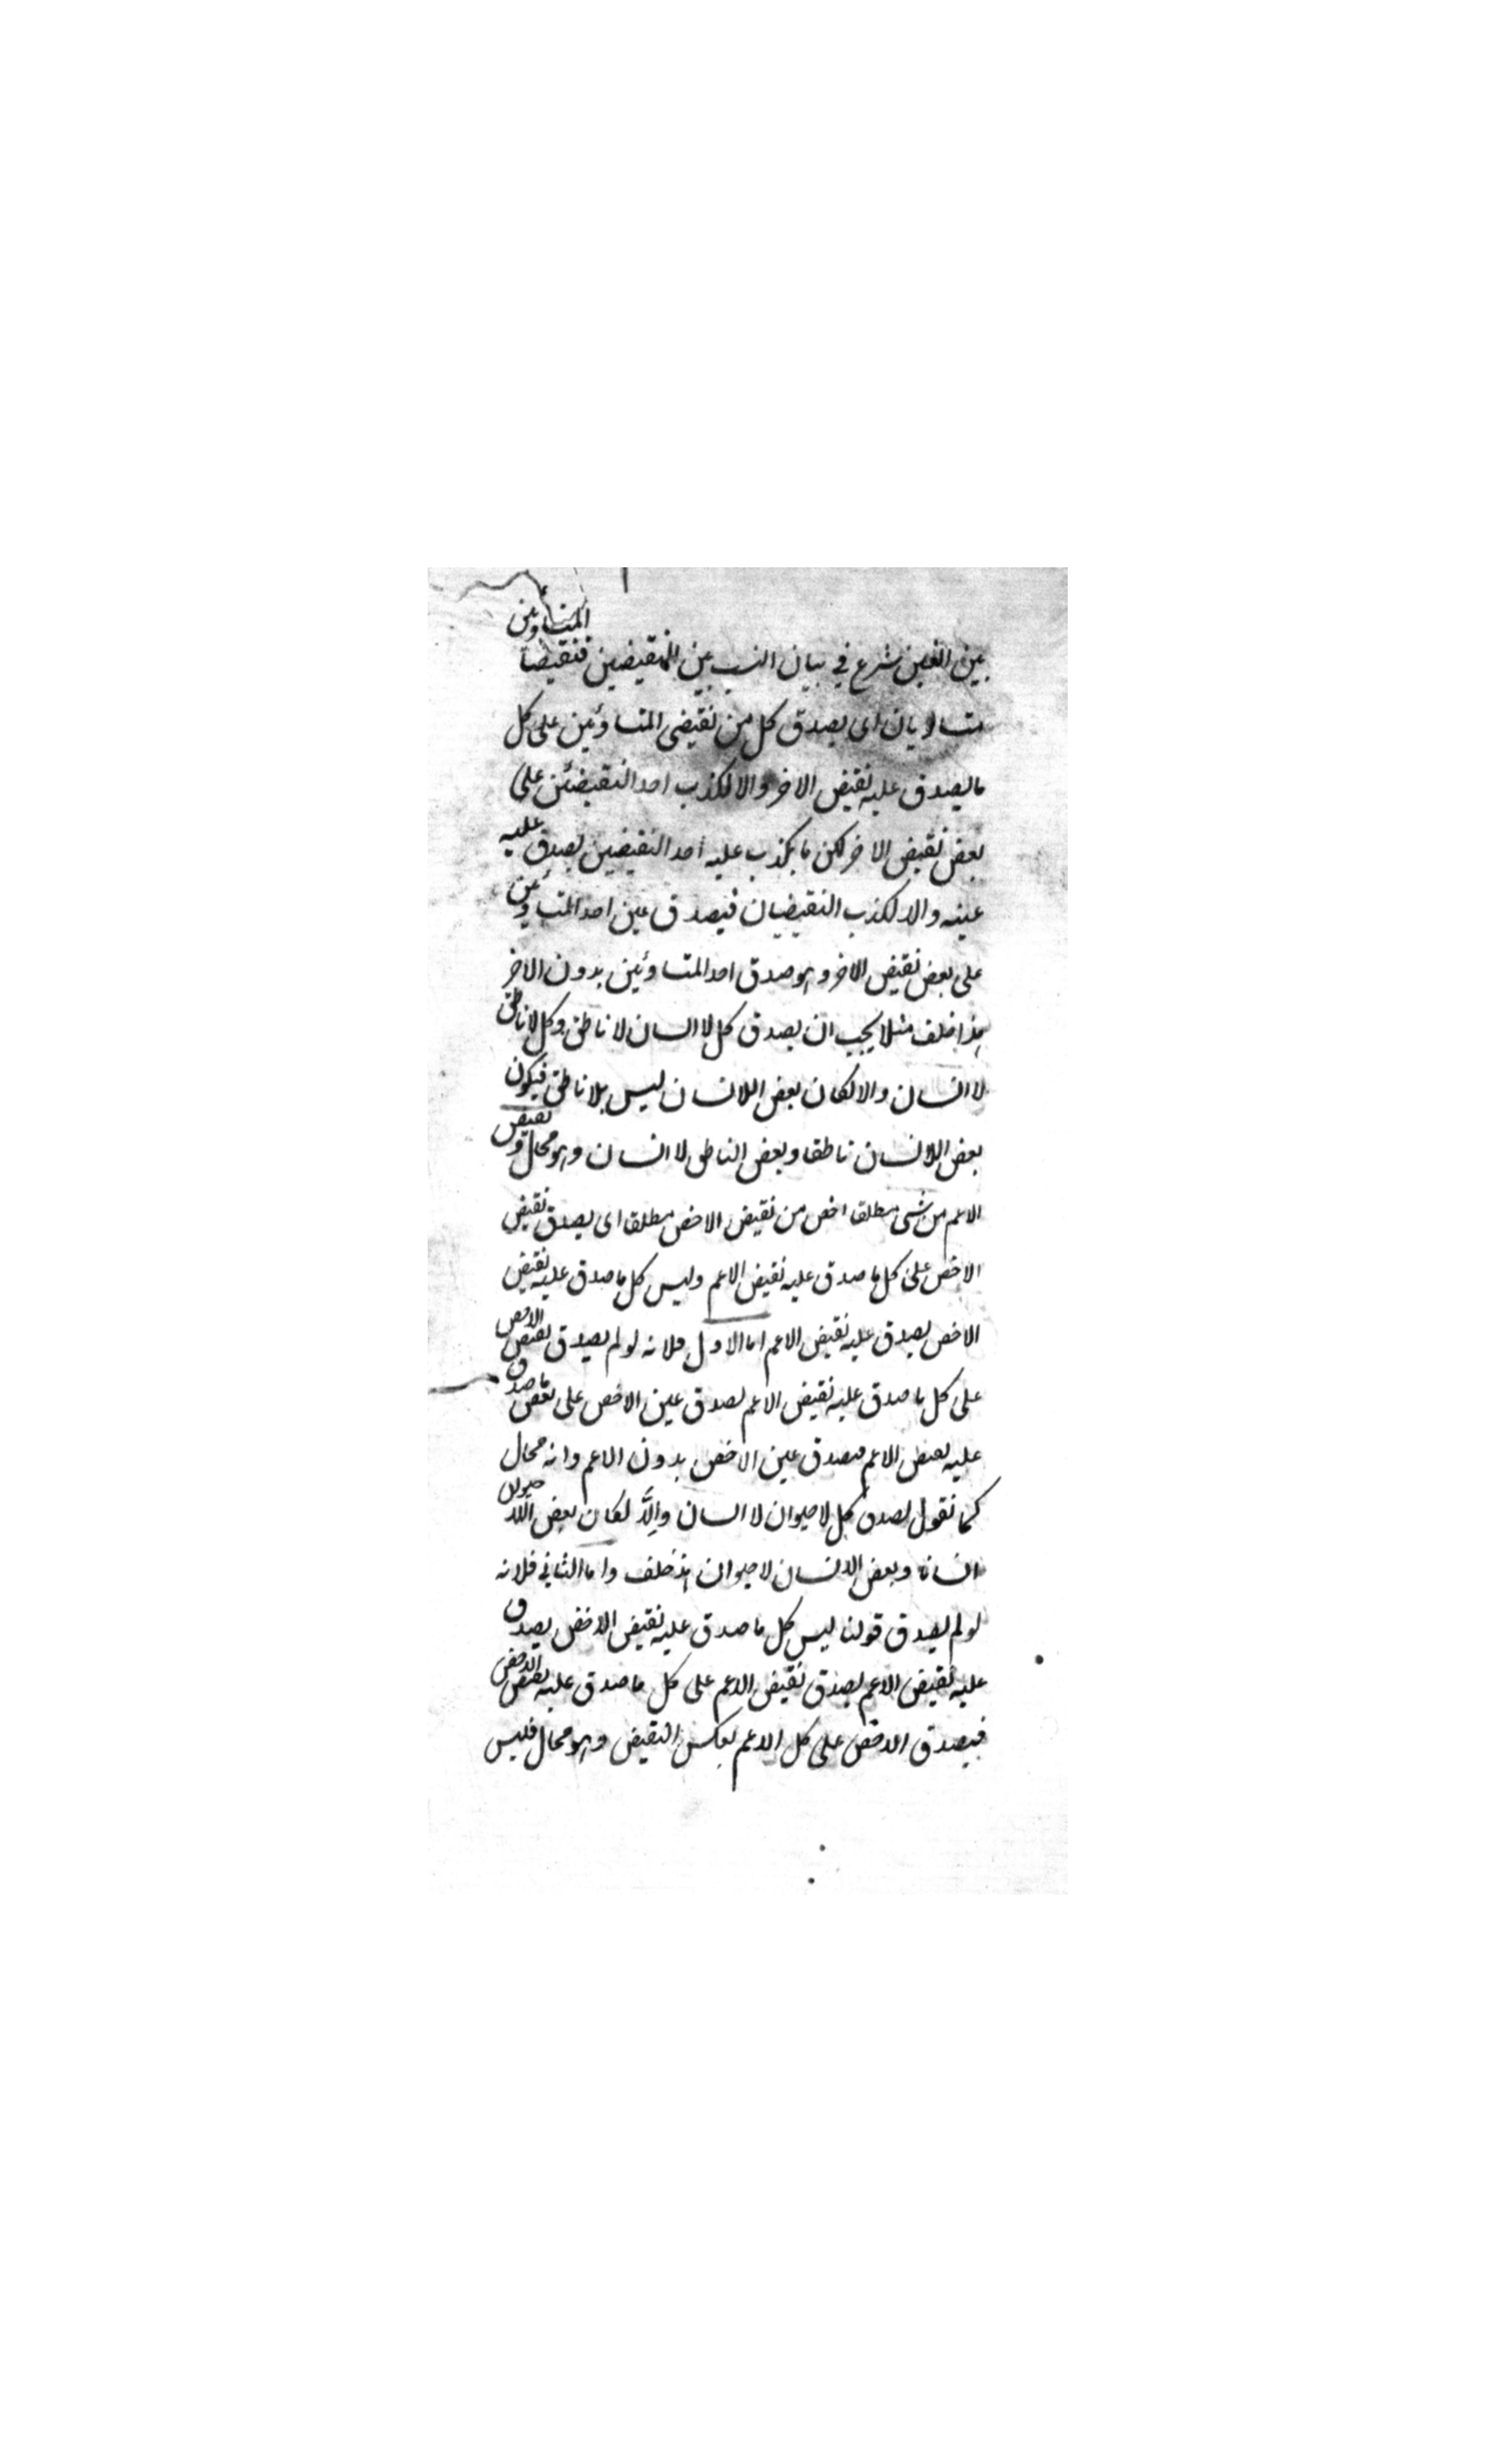 بين العينين شرع في بيان النسب بين النقيضين فنقيضا المتساوئين
متساويان اى يصدق كل من نقيضى المتساوئين على كل
ما يصدق عليه نقيض الاخر والا لكذب احد النقيضين على
بعض نقيض الاخر لكن ما يكذب عليه احد النقيضين يصدق عليه
عينه والا لكذب النقيضان فيصدق عين احد المتساوئين
على بعض نقيض الاخر وهو صدق احد المتساوئين بدون الاخر
هذا خلف مثلا يجب ان يصدق كل لا انسان لا ناطق وكل لا ناطق
لا انسان والا لكان بعض اللانسان ليس بلا ناطق فيكون
بعض اللانسان ناطقا وبعض الناطق لا انسان وهو محال ونقيض
الاعم من شئ مطلقا اخص من نقيض الاخص مطلقا اى يصدق نقيض
الاخص على كل ما صدق عليه نقيض الاعم وليس كل ما صدق عليه نقيض
الاخص يصدق عليه نقيض الاعم اما الاول فلانه لو لم يصدق نقيض الاخص
على كل ما صدق عليه نقيض الاعم لصدق عين الاخص على بعض ما صدق
عليه نقيض الاعم فيصدق عين الاخص بدون الاعم وانه محال
كما نقول يصدق كل لا حيوان لا انسان وإلَّا لكان بعض اللا حيوان
انسانا وبعض الانسان لا حيوان هذا خلف واما الثاني فلانه
لو لم يصدق قولنا ليس كل ما صدق عليه نقيض الاخص يصدق
عليه نقيض الاعم لصدق نقيض الاعم على كل ما صدق عليه نقيض الاخص
فيصدق الاخص على كل الاعم بعكس النقيض وهو محال فليس